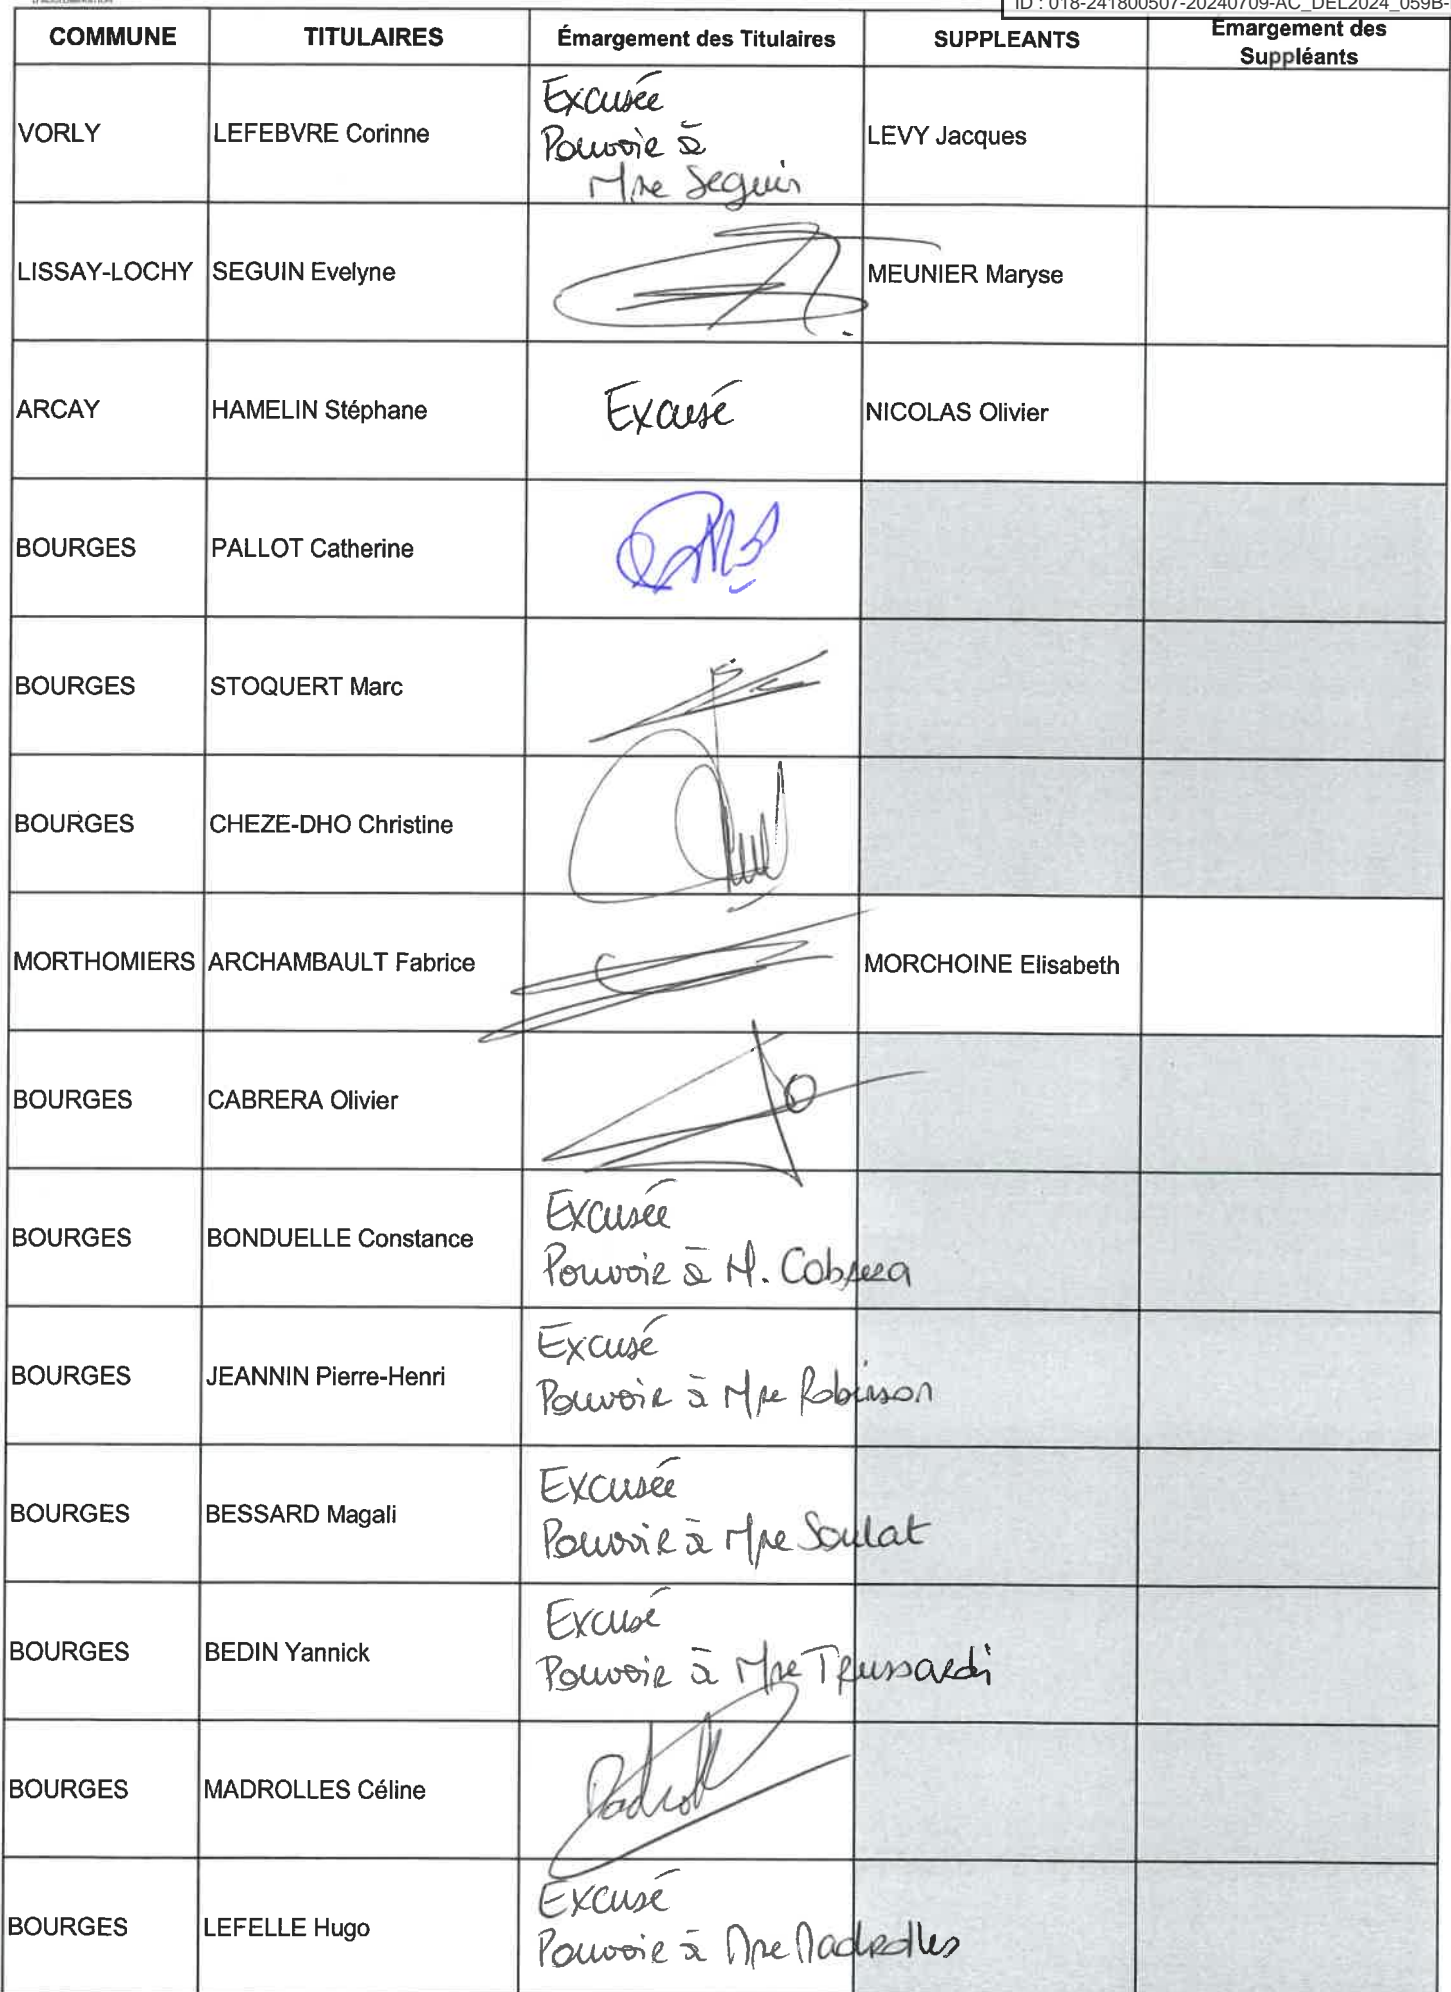 ID : 018-241800507-20240709-AC_DEL2024_059B-
COMMUNE TITULAIRES Émargement des Titulaires SUPPLEANTS Émargement des Suppléants
VORLY LEFEBVRE Corinne Excusée LEVY Jacques
Pouvoir à
Mme Seguin
LISSAY-LOCHY SEGUIN Evelyne MEUNIER Maryse
ARCAY HAMELIN Stéphane Excusé NICOLAS Olivier
BOURGES PALLOT Catherine
BOURGES STOQUERT Marc
BOURGES CHEZE-DHO Christine
MORTHOMIERS ARCHAMBAULT Fabrice MORCHOINE Elisabeth
BOURGES CABRERA Olivier
BOURGES BONDUELLE Constance Excusée
Pouvoir à M. Cabrera
BOURGES JEANNIN Pierre-Henri Excusé
Pouvoir à Mme Robinson
BOURGES BESSARD Magali Excusée
Pouvoir à Mme Soulat
BOURGES BEDIN Yannick Excusé
Pouvoir à Mme Trussardi
BOURGES MADROLLES Céline
BOURGES LEFELLE Hugo Excusé
Pouvoir à Mme Madrolles